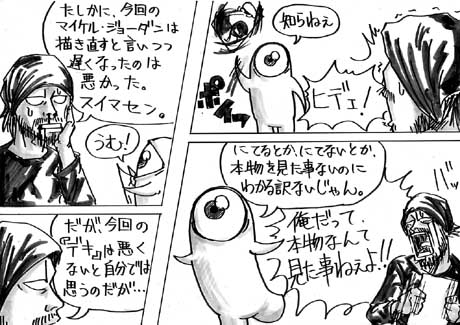 たしかに、今回の
マイケル・ジョーダンは
描き直すと言いつつ
遅くなったのは
悪かった。
スイマセン。
うむ!
だが、今回の
『デキ』は悪く
ないと自分では
思うのだが…
知らねぇ
ヒデェ!
にてるとか、にてないとか、
本物を見た事ないのに
わかる訳ないじゃん。
俺だって、
本物なんて
見た事ねえよ!!